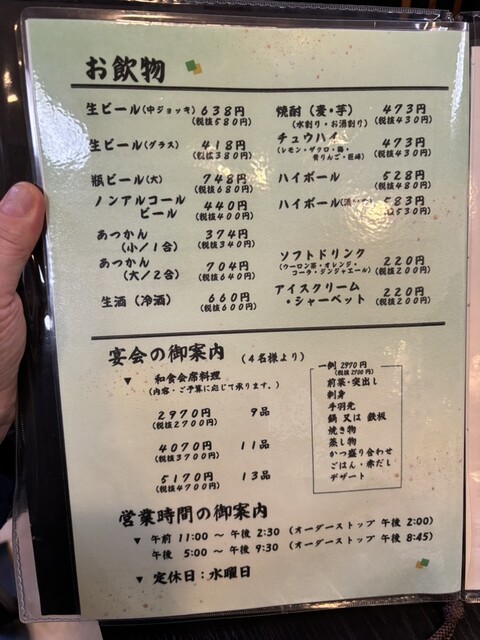 お飲物
生ビール(中ジョッキ) 638円
(税抜580円)
生ビール(グラス) 418円
(税抜380円)
瓶ビール(大) 748円
(税抜680円)
ノンアルコール
ビール 440円
(税抜400円)
あつかん
(小/1合) 374円
(税抜340円)
あつかん
(大/2合) 704円
(税抜640円)
生酒(冷酒) 660円
(税抜600円)
焼酎(麦・芋) 473円
(水割り・お湯割り) (税抜430円)
チュウハイ 473円
(レモン・ザクロ・梅・ (税抜430円)
青りんご・巨峰)
ハイボール 528円
(税抜480円)
ハイボール( 583円
(税抜530円)
ソフトドリンク 220円
(ウーロン茶・オレンジ・ (税抜200円)
コーラ・ジンジャエール)
アイスクリーム 220円
・シャーベット (税抜200円)
宴会の御案内 (4名様より)
▼ 和食会席料理
(内容・ご予算に応じて承ります。)
2970円 9品
(税抜2700円)
4070円 11品
(税抜3700円)
5170円 13品
(税抜4700円)
一例 2970円
(税抜2700円)
前菜・突出し
刺身
手羽先
鍋 又は 鉄板
焼き物
蒸し物
かつ盛り合わせ
ごはん・赤だし
デザート
営業時間の御案内
▼ 午前 11:00 〜 午後 2:30 (オーダーストップ 午後 2:00)
午後 5:00 〜 午後 9:30 (オーダーストップ 午後 8:45)
▼ 定休日:水曜日